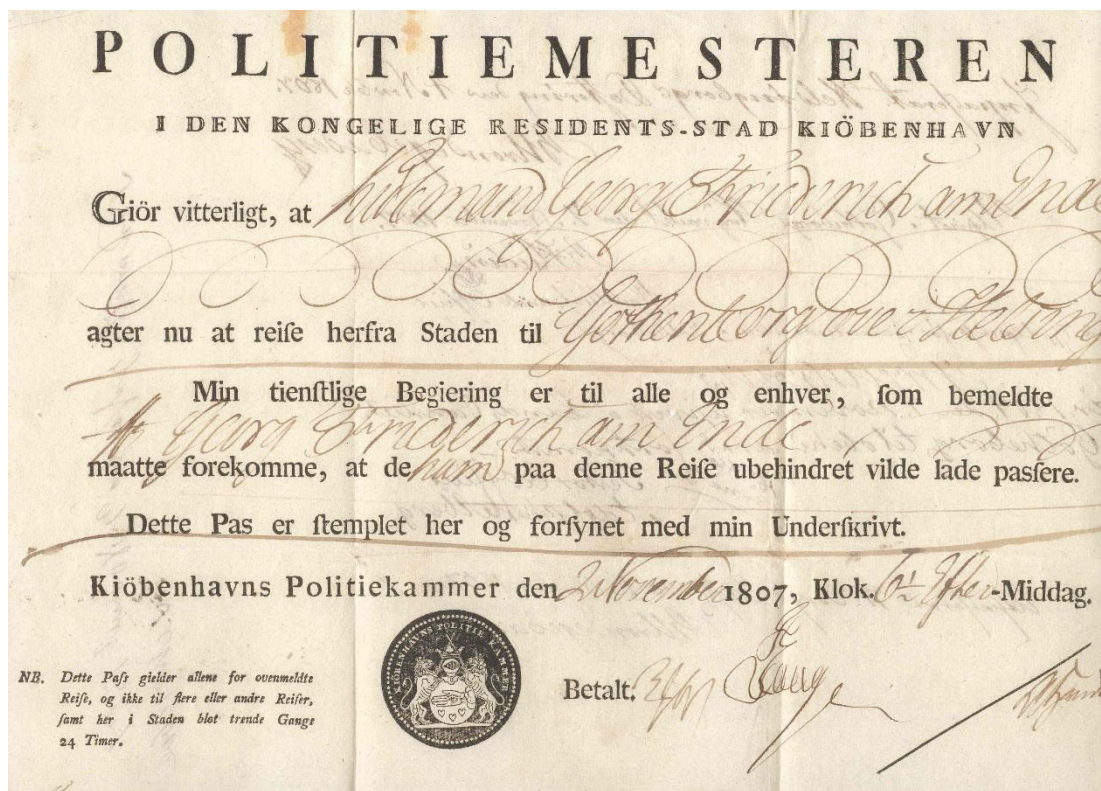 POLITIEMESTEREN
I DEN KONGELIGE RESIDENTS-STAD KIÖBENHAVN
Giör vitterligt, at Kiöbmand Georg Friderich am Ende
agter nu at reiſe herfra Staden til Gothenborg over Helsing
Min tienſtlige Begiering er til alle og enhver, ſom bemeldte
Georg Friderich am Ende
maatte forekomme, at de ham paa denne Reiſe ubehindret vilde lade paſſere.
Dette Pas er ſtemplet her og forſynet med min Underſkrivt.
Kiöbenhavns Politiekammer den 2 November 1807, Klok. 6½ Efter-Middag.
KIÖBENHAVNS POLITIE KAMMER
Betalt.
NB. Dette Paſs gielder allene for ovenmeldte
Reiſe, og ikke til flere eller andre Reiſer,
ſamt her i Staden blot trende Gange
24 Timer.